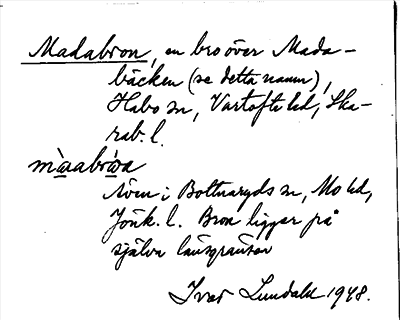 Madabron, en bro över Mada-
bäcken (se detta namn),
Habo sn, Vartofta hd, Ska-
rab. l.
màdabròa
Även i Bottnaryds sn, Mo hd,
Jönk. l. Bron ligger på
själva länsgränsen
Ivar Lundahl 1948.